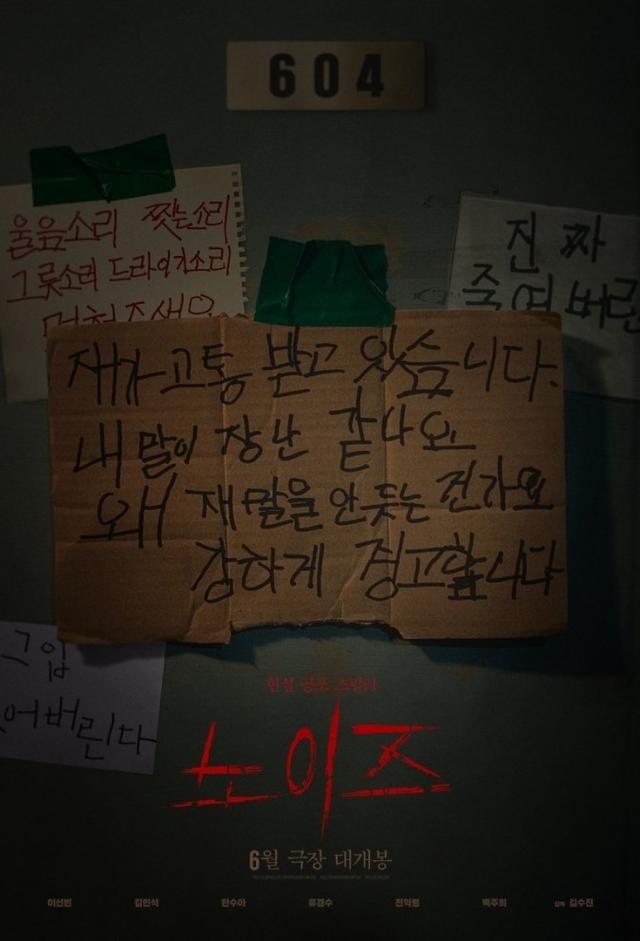 604
울음소리 짖는소리
그릇소리 드라이기소리
멈춰주세요
진짜
죽여버린
재가 고통 받고 있습니다.
내 말이 장난 같나요
왜 재 말을 안 듯는 건가요
강하게 경고합니다
그입
어버린다
현실 공포 스릴러
노이즈
6월 극장 대개봉
이선빈 김민석 한수아 류경수 전익령 백주희 감독 김수진